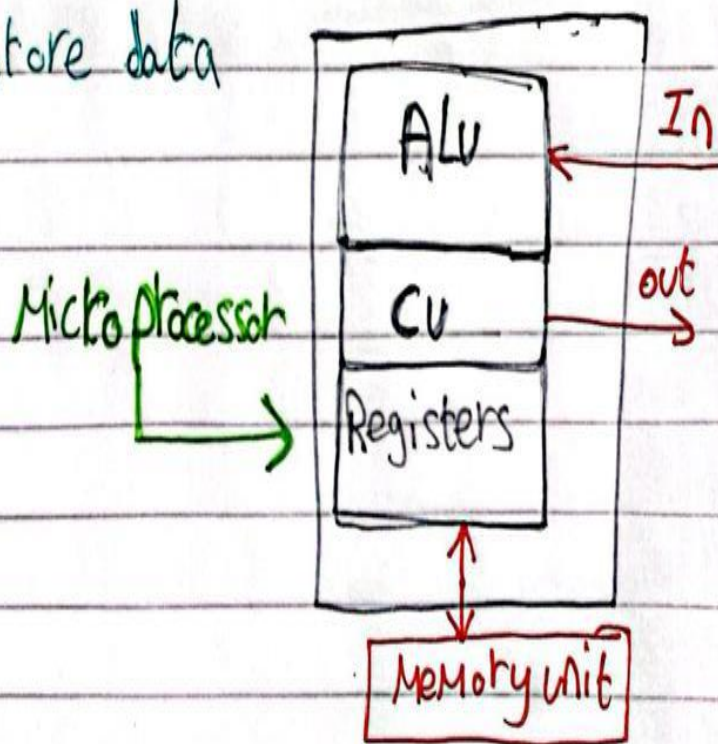 tore data
ALU
In
Microprocessor
CU
out
Registers
Memory unit